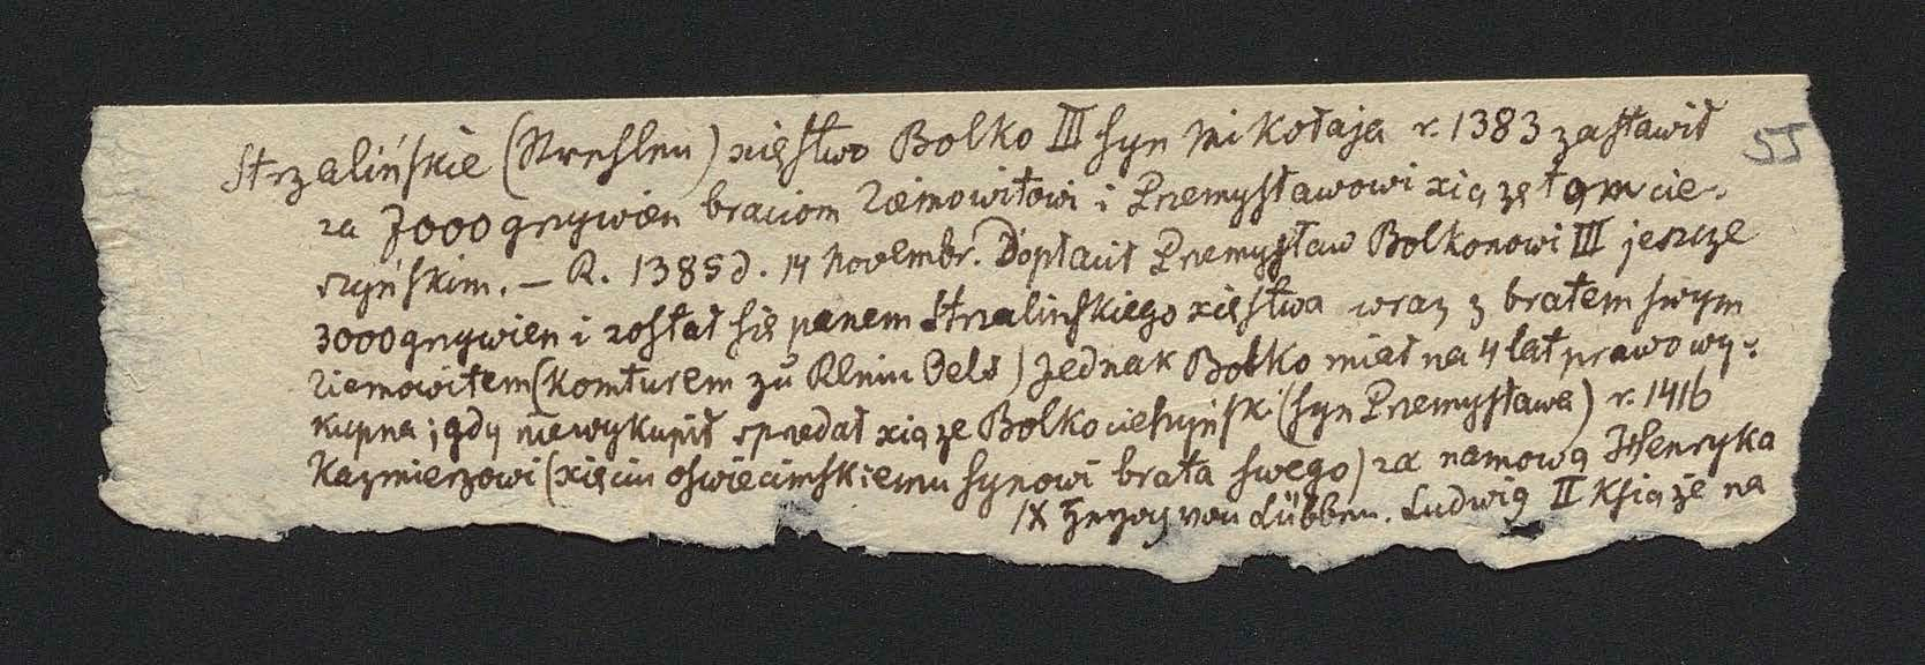 Strzalińskie (Strehlen) xięstwo Bolko III syn Mikołaja r. 1383 zastawił 55
za 7000 grzywien braciom Ziemowitowi i Przemysławowi xiążętom cie-
szyńskim. — R. 1385 d. 14 Novembr. Dopłacił Przemysław Bolkonowi III jeszcze
3000 grzywien i został się panem Strzalinskiego xięstwa wraz z bratem swym
Ziemowitem (Komturem zu Klein Oels) Jednak Bolko miał na 4 lat prawo wy-
kupna; gdy niewykupił sprzedał xiąze Bolko cieszyńsk. (syn Przemysława) r. 1416
Kazmierzowi (xięciu oswiecimskiemu synowi brata swego) za namową Henryka
IX Herzog von Lübben. Ludwig II Książe na